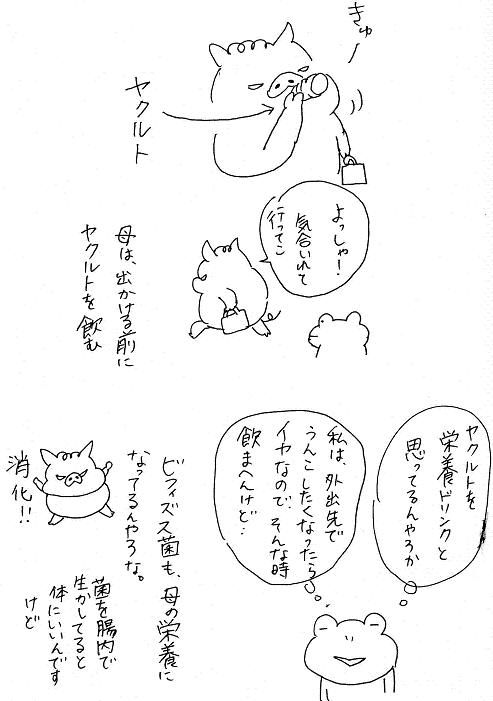 きゅー
ヤクルト
よっしゃ!
気合いれて
行ってこ
母は、出かける前に
ヤクルトを飲む
ヤクルトを
栄養ドリンクと
思ってるんやろか
私は、外出先で
うんこしたくなったら
イヤなので、そんな時
飲まへんけど…
ビフィズス菌も、母の栄養に
なってるんやろな。
消化!!
菌を腸内で
生かしてると
体にいいんです
けど